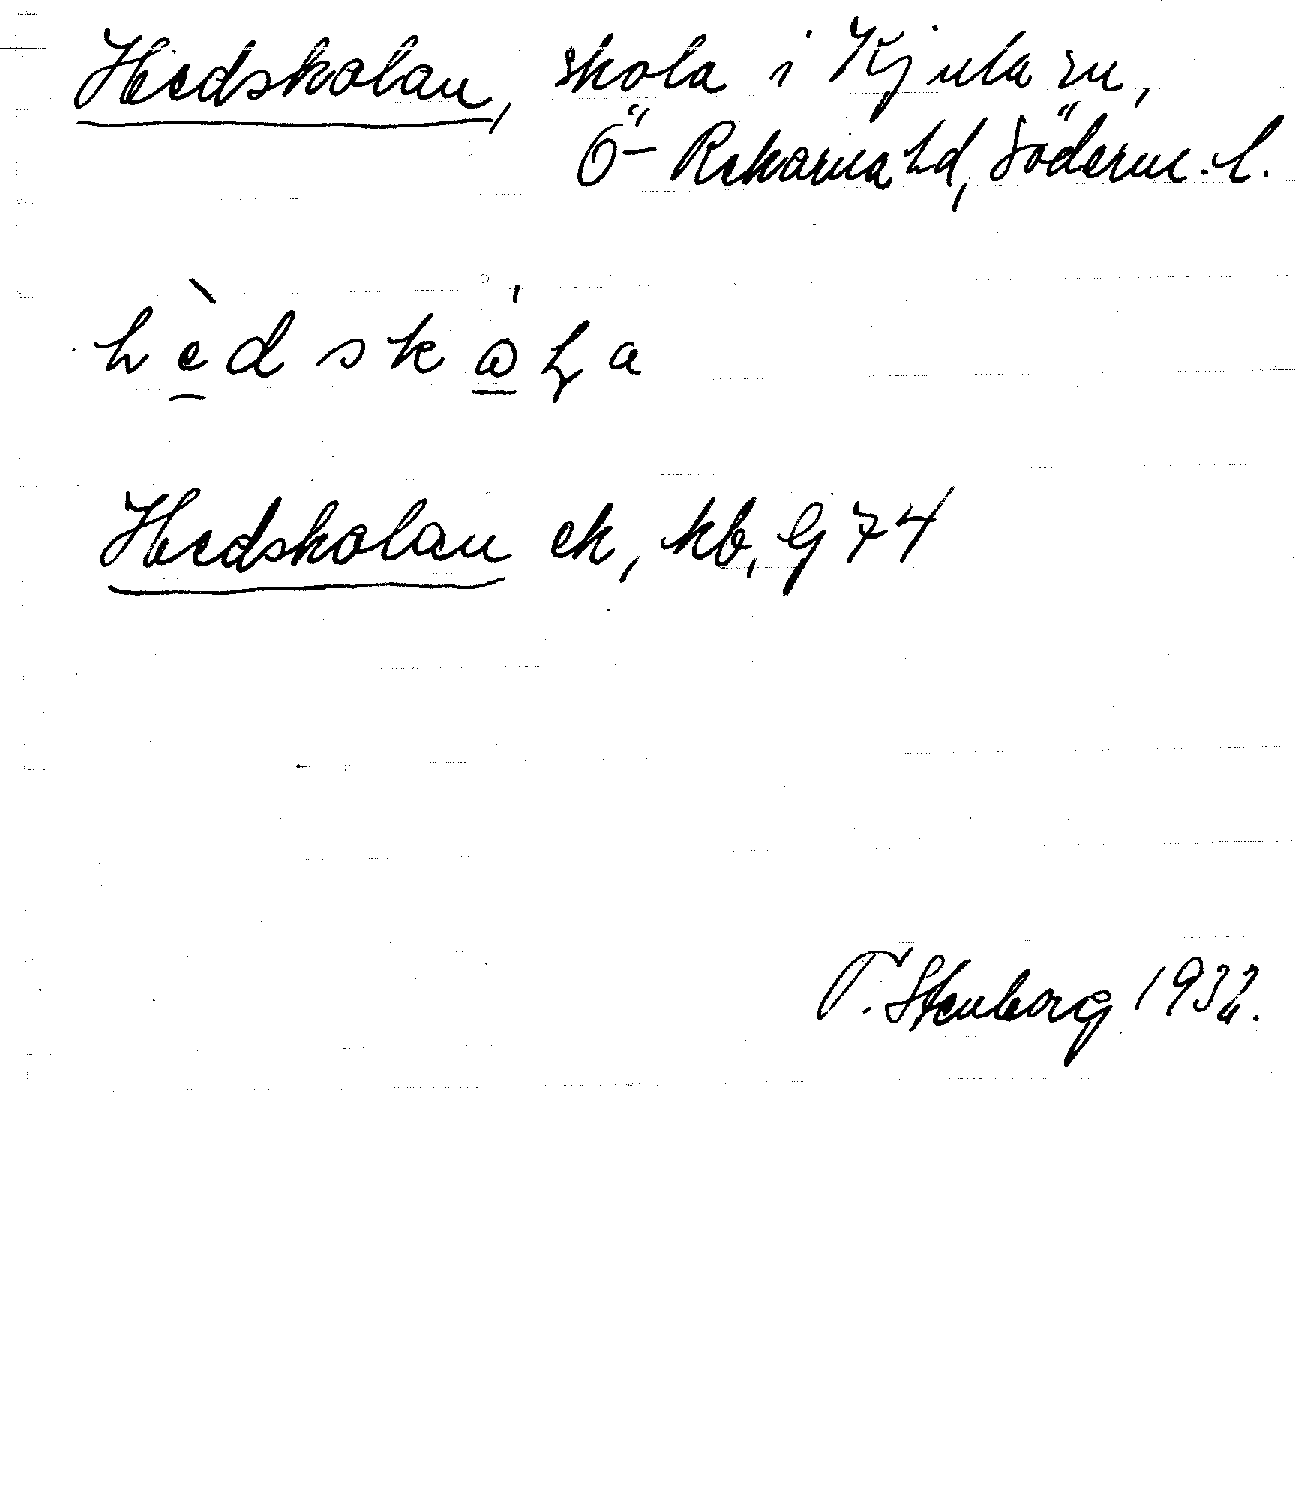 Hedskolan, skola i Kjula sn,
Ö-Rekarna hd, Söderm. l.
hèdskòla
Hedskolan ek, kb, G 74
T. Stenborg 1932.